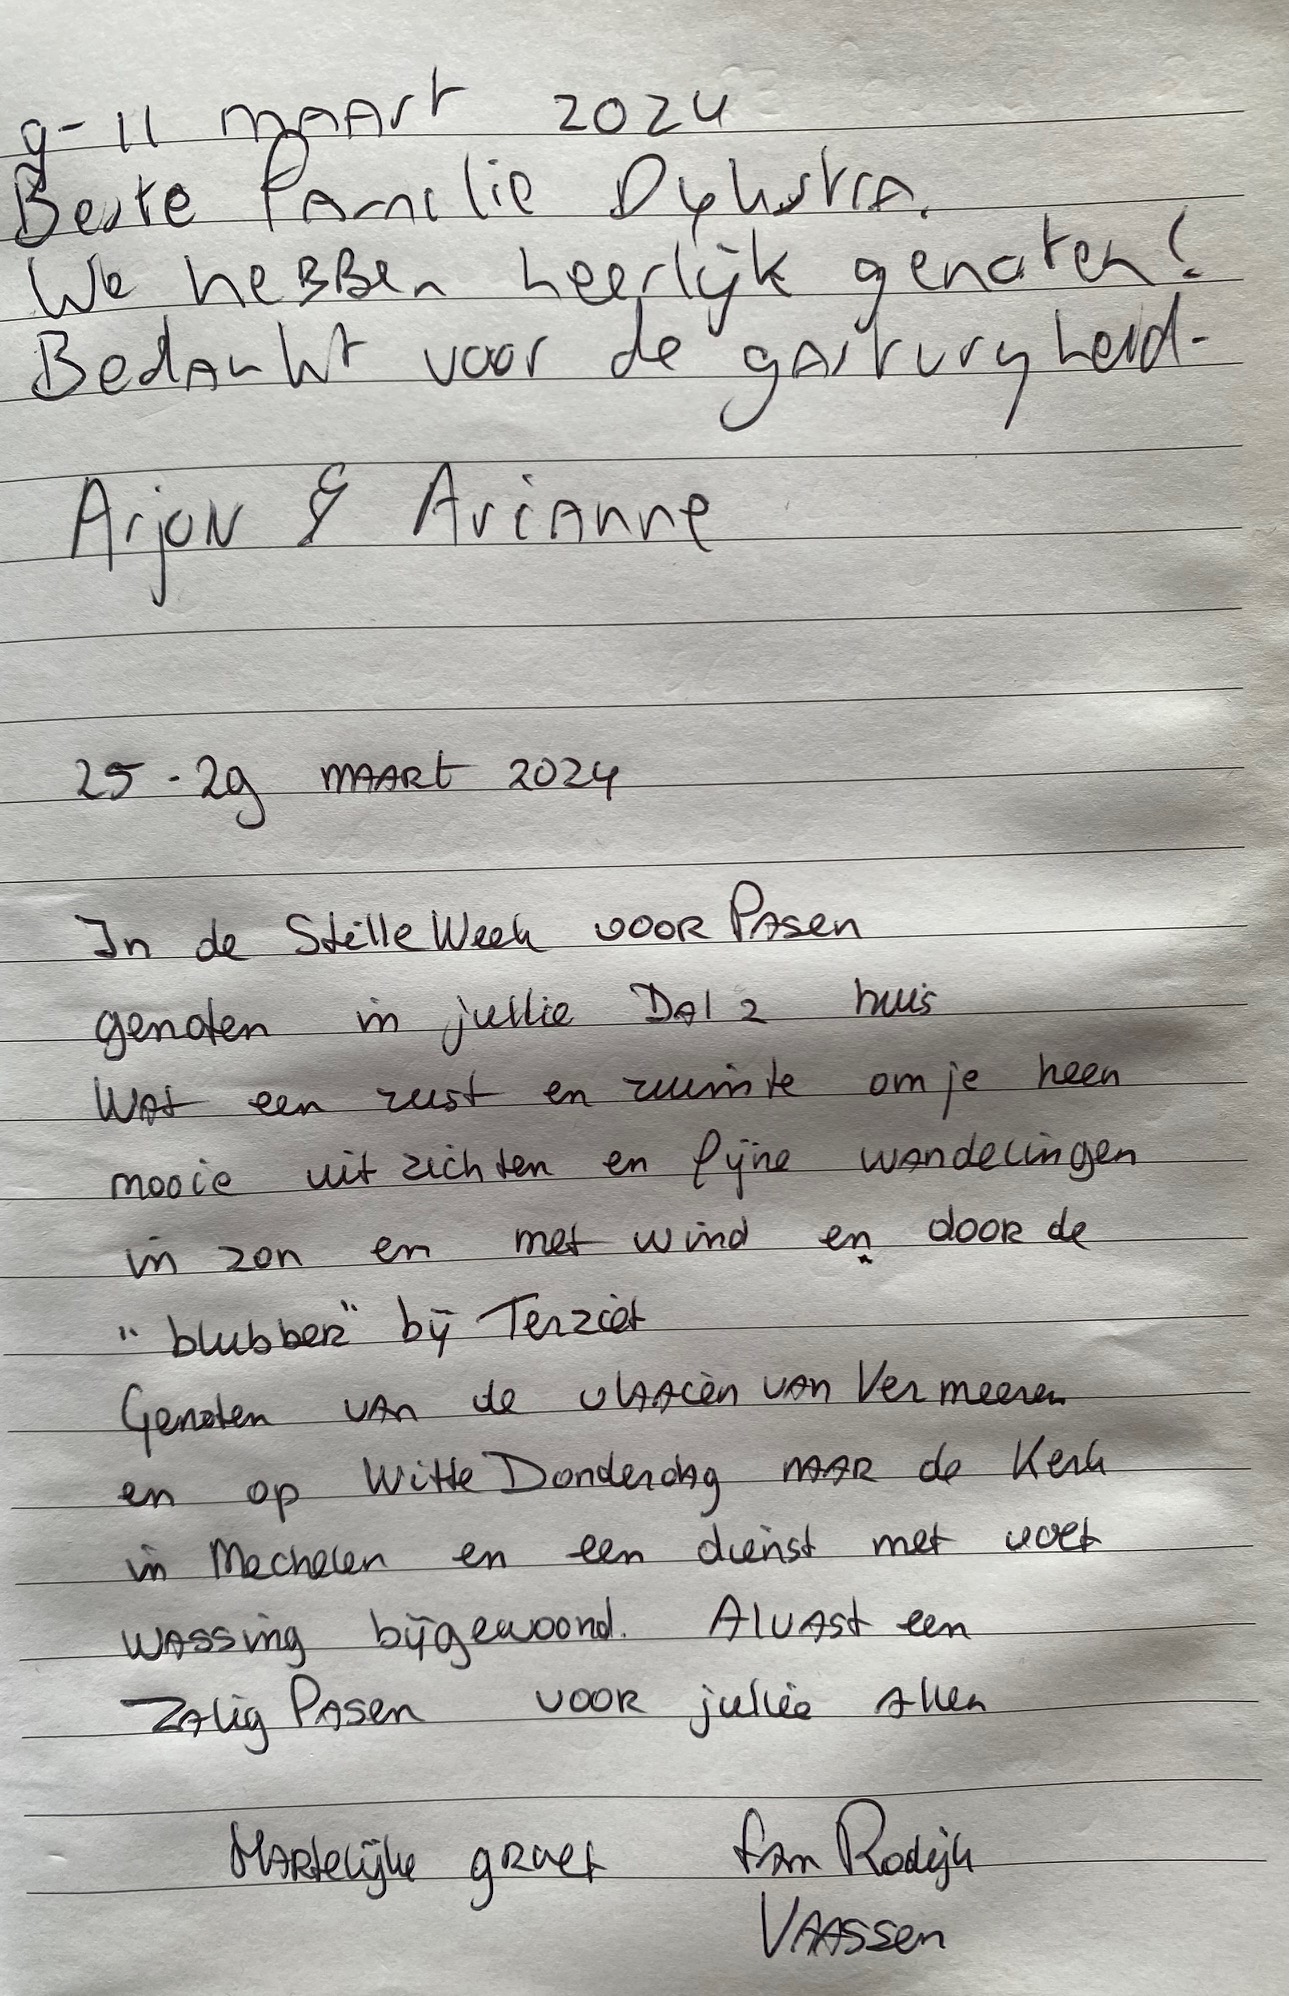 9-11 maart 2024
Beste Familie Dykstra.
We hebben heerlijk genoten!
Bedankt voor de gastvryheid.
Arjon & Arianne
25-29 maart 2024
In de Stille Week voor Pasen
genoten in jullie Dal 2 huis
Wat een rust en ruimte om je heen
mooie uit zichten en fijne wandelingen
in zon en met wind en door de
"blubber" bij Terziet
Genoten van de vlaaien van Vermeeren
en op Witte Donderdag naar de Kerk
in Mechelen en een dienst met voet
wassing bijgewoond. Alvast een
Zalig Pasen voor jullie allen
Hartelijke groet fam Rodijk
Vaassen